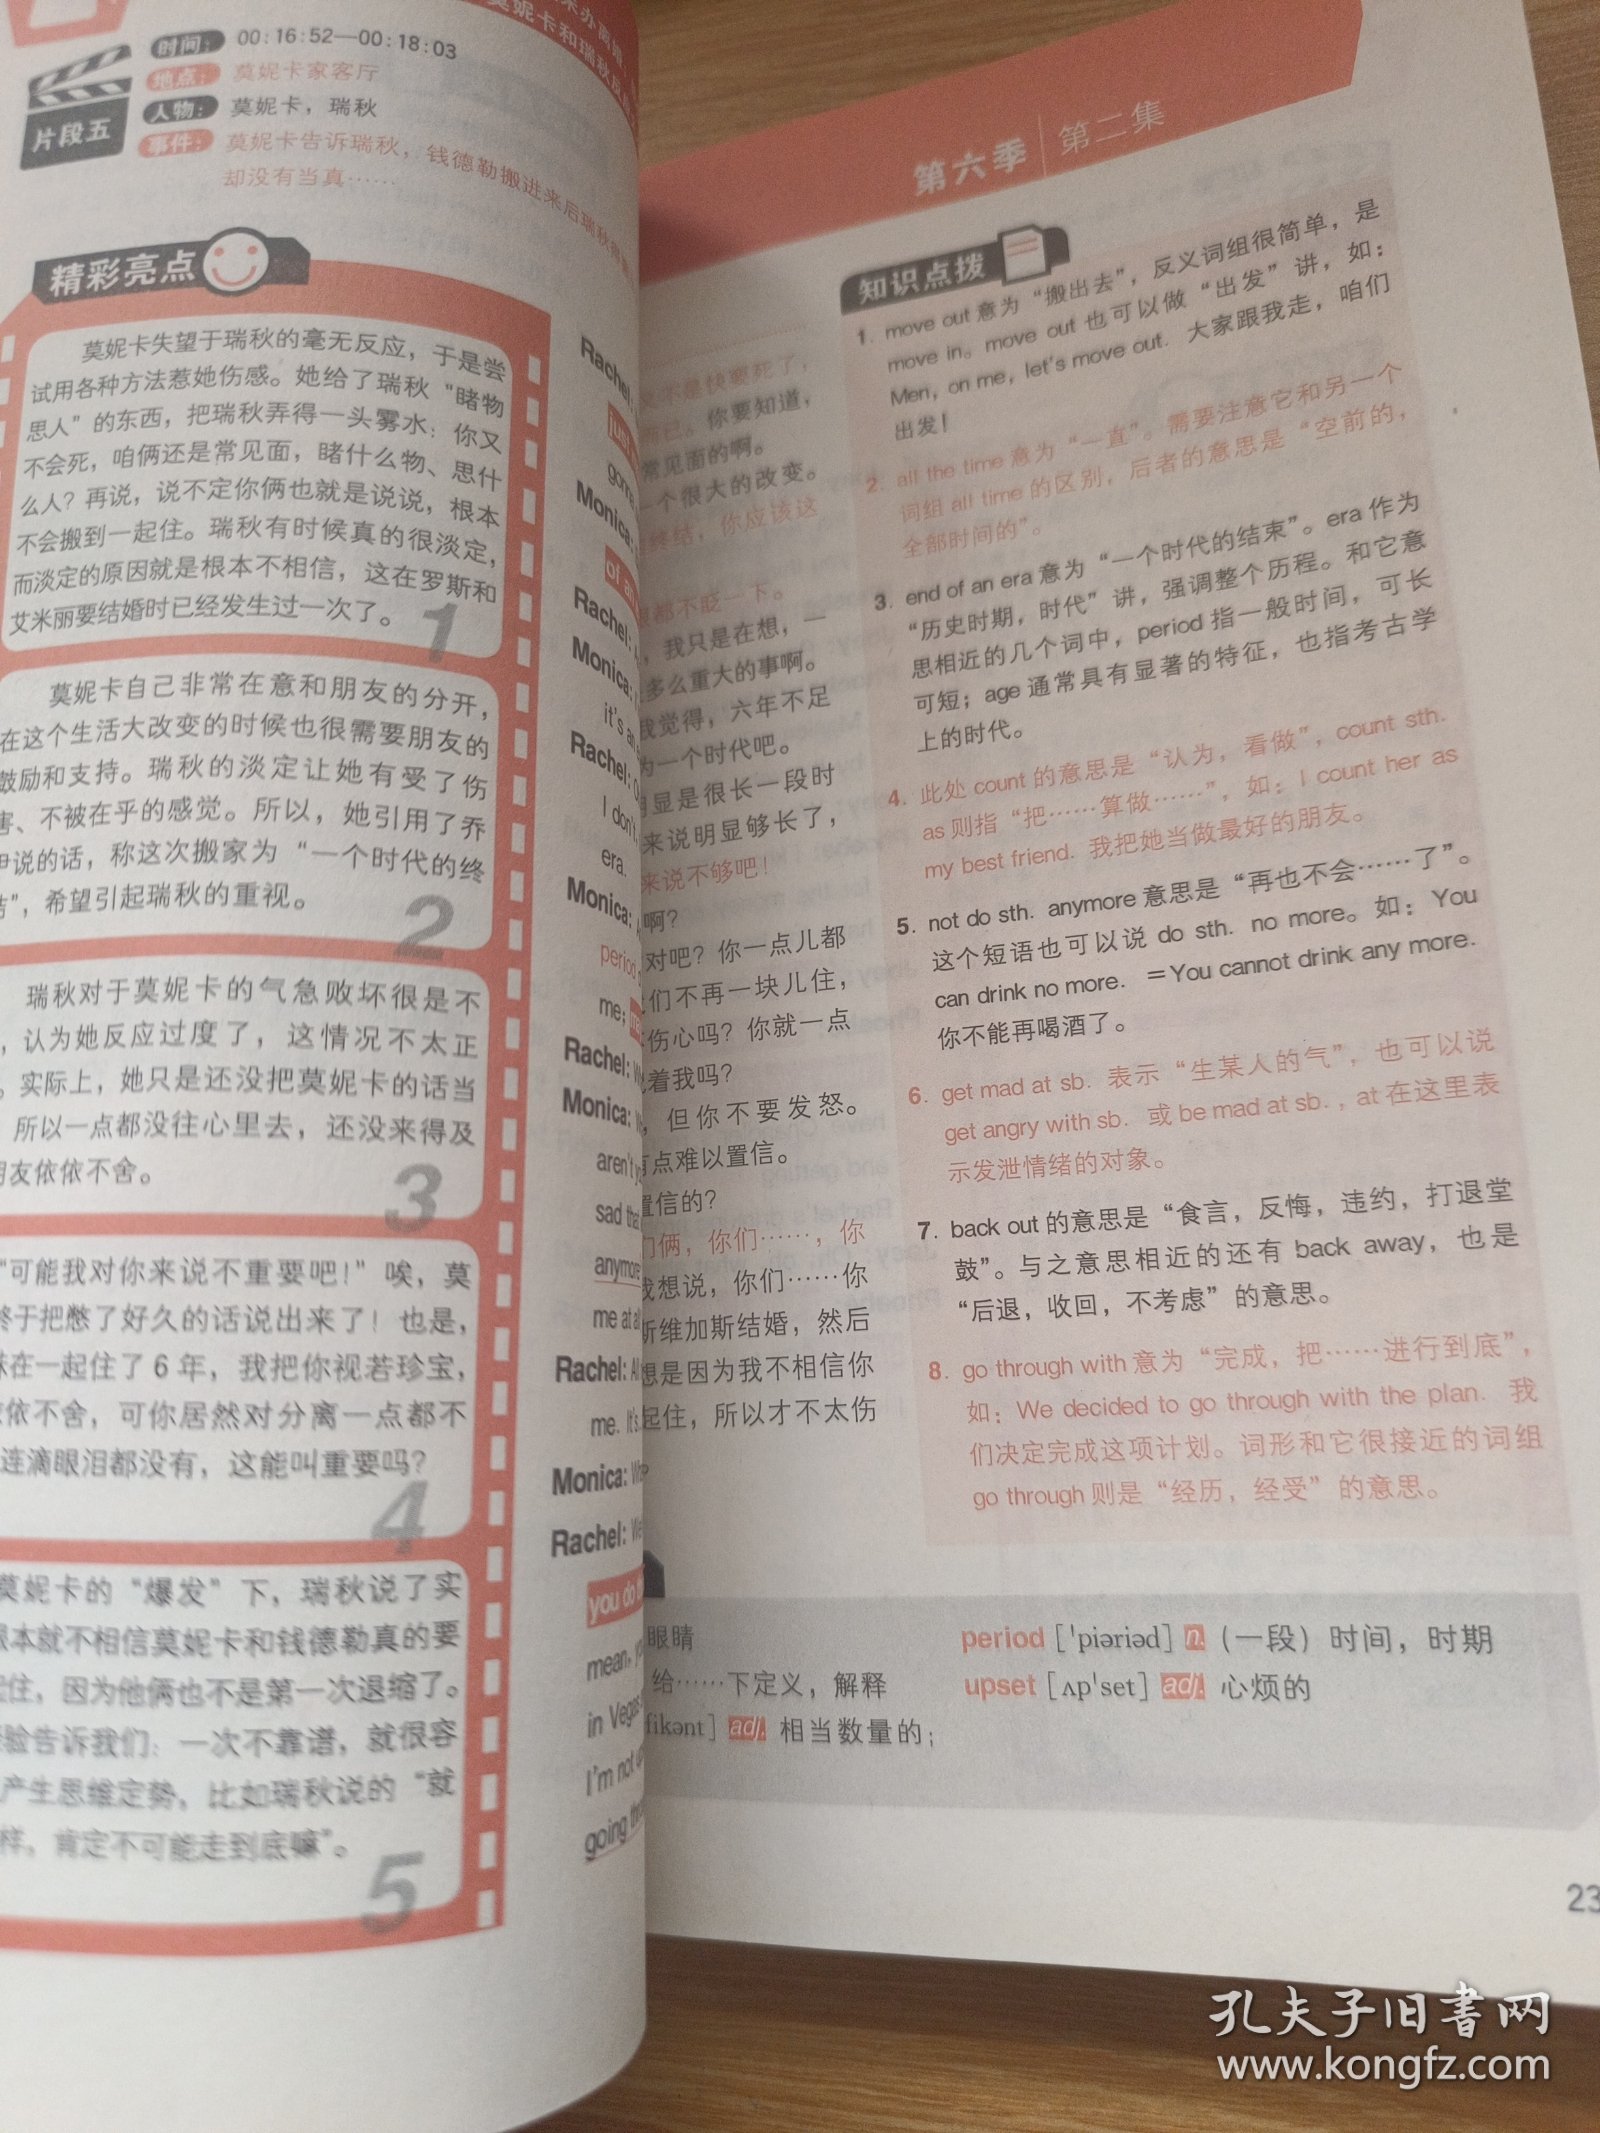 片段五
时间： 00:16:52—00:18:03
地点： 莫妮卡家客厅
人物： 莫妮卡，瑞秋
事件： 莫妮卡告诉瑞秋，钱德勒搬进来后瑞秋
却没有当真……
精彩亮点
莫妮卡失望于瑞秋的毫无反应，于是尝
试用各种方法惹她伤感。她给了瑞秋“睹物
思人”的东西，把瑞秋弄得一头雾水：你又
不会死，咱俩还是常见面，睹什么物、思什
么人？再说，说不定你俩也就是说说，根本
不会搬到一起住。瑞秋有时候真的很淡定，
而淡定的原因就是根本不相信，这在罗斯和
艾米丽要结婚时已经发生过一次了。
1
莫妮卡自己非常在意和朋友的分开，
在这个生活大改变的时候也很需要朋友的
鼓励和支持。瑞秋的淡定让她有受了伤
害、不被在乎的感觉。所以，她引用了乔
伊说的话，称这次搬家为“一个时代的终
结”，希望引起瑞秋的重视。
2
瑞秋对于莫妮卡的气急败坏很是不
，认为她反应过度了，这情况不太正
。实际上，她只是还没把莫妮卡的话当
所以一点都没往心里去，还没来得及
朋友依依不舍。
3
“可能我对你来说不重要吧！”唉，莫
终于把憋了好久的话说出来了！也是，
在一起住了6年，我把你视若珍宝，
依不舍，可你居然对分离一点都不
连滴眼泪都没有，这能叫重要吗？
4
莫妮卡的“爆发”下，瑞秋说了实
根本就不相信莫妮卡和钱德勒真的要
住，因为他俩也不是第一次退缩了。
验告诉我们：一次不靠谱，就很容
产生思维定势，比如瑞秋说的“就
样，肯定不可能走到底嘛”。
5
Rachel:
just
gonna
Monica:
of an
Rachel:
Monica:
it's an
Rachel:
I don't
era.
Monica:
period
me;
Rachel:
Monica:
aren't
sad that
anymore
me at all
Rachel:
me. It's
Monica:
Rachel:
you do
mean,
in Vegas
I'm not
going
第六季 第二集
是快要死了，
而已。你要知道，
常见面的啊。
一个很大的改变。
终结，你应该这
都不眨一下。
，我只是在想，一
多么重大的事啊。
我觉得，六年不足
为一个时代吧。
明显是很长一段时
来说明显够长了，
来说不够吧！
啊？
对吧？你一点儿都
们不再一块儿住，
伤心吗？你就一点
着我吗？
，但你不要发怒。
有点难以置信。
置信的？
们俩，你们……，你
我想说，你们……你
斯维加斯结婚，然后
想是因为我不相信你
起住，所以才不太伤
知识点拨
1. move out意为“搬出去”，反义词组很简单，是
move in。move out也可以做“出发”讲，如：
Men, on me, let's move out. 大家跟我走，咱们
出发！
2. all the time意为“一直”。需要注意它和另一个
词组all time的区别，后者的意思是“空前的，
全部时间的”。
3. end of an era意为“一个时代的结束”。era作为
“历史时期，时代”讲，强调整个历程。和它意
思相近的几个词中，period指一般时间，可长
可短；age通常具有显著的特征，也指考古学
上的时代。
4. 此处count的意思是“认为，看做”，count sth.
as则指“把……算做……”，如：I count her as
my best friend. 我把她当做最好的朋友。
5. not do sth. anymore意思是“再也不会……了”。
这个短语也可以说do sth. no more。如：You
can drink no more. ＝You cannot drink any more.
你不能再喝酒了。
6. get mad at sb. 表示“生某人的气”，也可以说
get angry with sb. 或be mad at sb.，at在这里表
示发泄情绪的对象。
7. back out的意思是“食言，反悔，违约，打退堂
鼓”。与之意思相近的还有back away，也是
“后退，收回，不考虑”的意思。
8. go through with意为“完成，把……进行到底”，
如：We decided to go through with the plan. 我
们决定完成这项计划。词形和它很接近的词组
go through则是“经历，经受”的意思。
眼睛
给……下定义，解释
fikənt] adj. 相当数量的；
period [ˈpiəriəd] n. （一段）时间，时期
upset [ʌpˈset] adj. 心烦的
23
孔夫子旧书网
www.kongfz.com